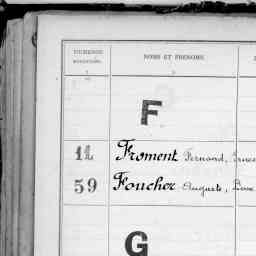 NUMÉROS
NOMS ET PRÉNOMS.
F
11 Froment Fernand,
59 Foucher Auguste,
G